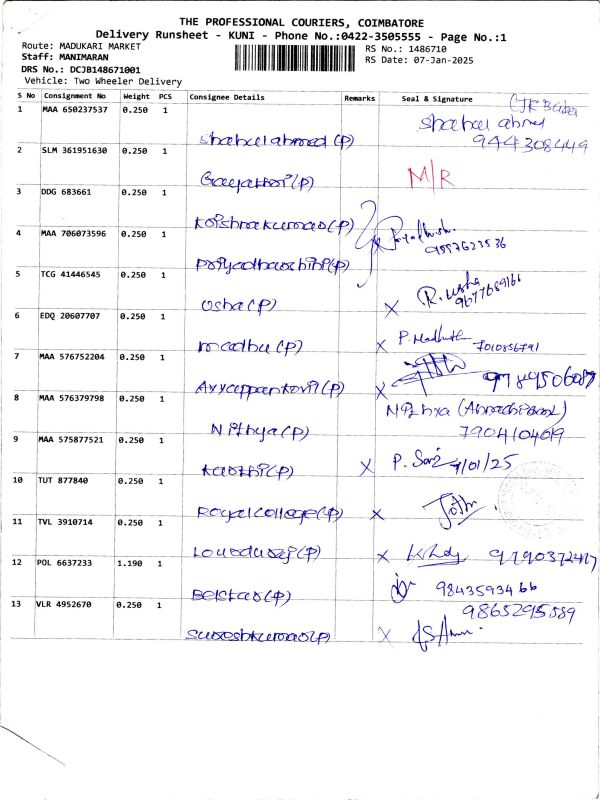 THE PROFESSIONAL COURIERS, COIMBATORE
Delivery Runsheet - KUNI - Phone No.:0422-3505555 - Page No.:1
Route: MADUKARI MARKET
RS No.: 1486710
Staff: MANIMARAN
RS Date: 07-Jan-2025
DRS No.: DCJB148671001
Vehicle: Two Wheeler Delivery
S No Consignment No Weight PCS Consignee Details Remarks Seal & Signature
1 MAA 650237537 0.250 1
Shahul ahmed (P) Shahul ahmed
944308449
2 SLM 361951630 0.250 1
Gayathri (P) M/R
3 DDG 683661 0.250 1
Krishnakumar (P)
4 MAA 706073596 0.250 1
Priyadharshini (P) 9597623536
5 TCG 41446545 0.250 1
Usha (P) X R. Usha
9677689166
6 EDQ 20607707 0.250 1
Madhu (P) X P. 7010856791
7 MAA 576752204 0.250 1
Ayyappankovil (P) X
8 MAA 576379798 0.250 1
Nithya (P) Nithya
7904104019
9 MAA 575877521 0.250 1
Karthi (P) X P. 7/01/25
10 TUT 877840 0.250 1
Royal College (P) X
11 TVL 3910714 0.250 1
Louduraj (P) X 9790372417
12 POL 6637233 1.190 1
(P) 9843593466
13 VLR 4952670 0.250 1
9865295589
Sureshkumar (P) X